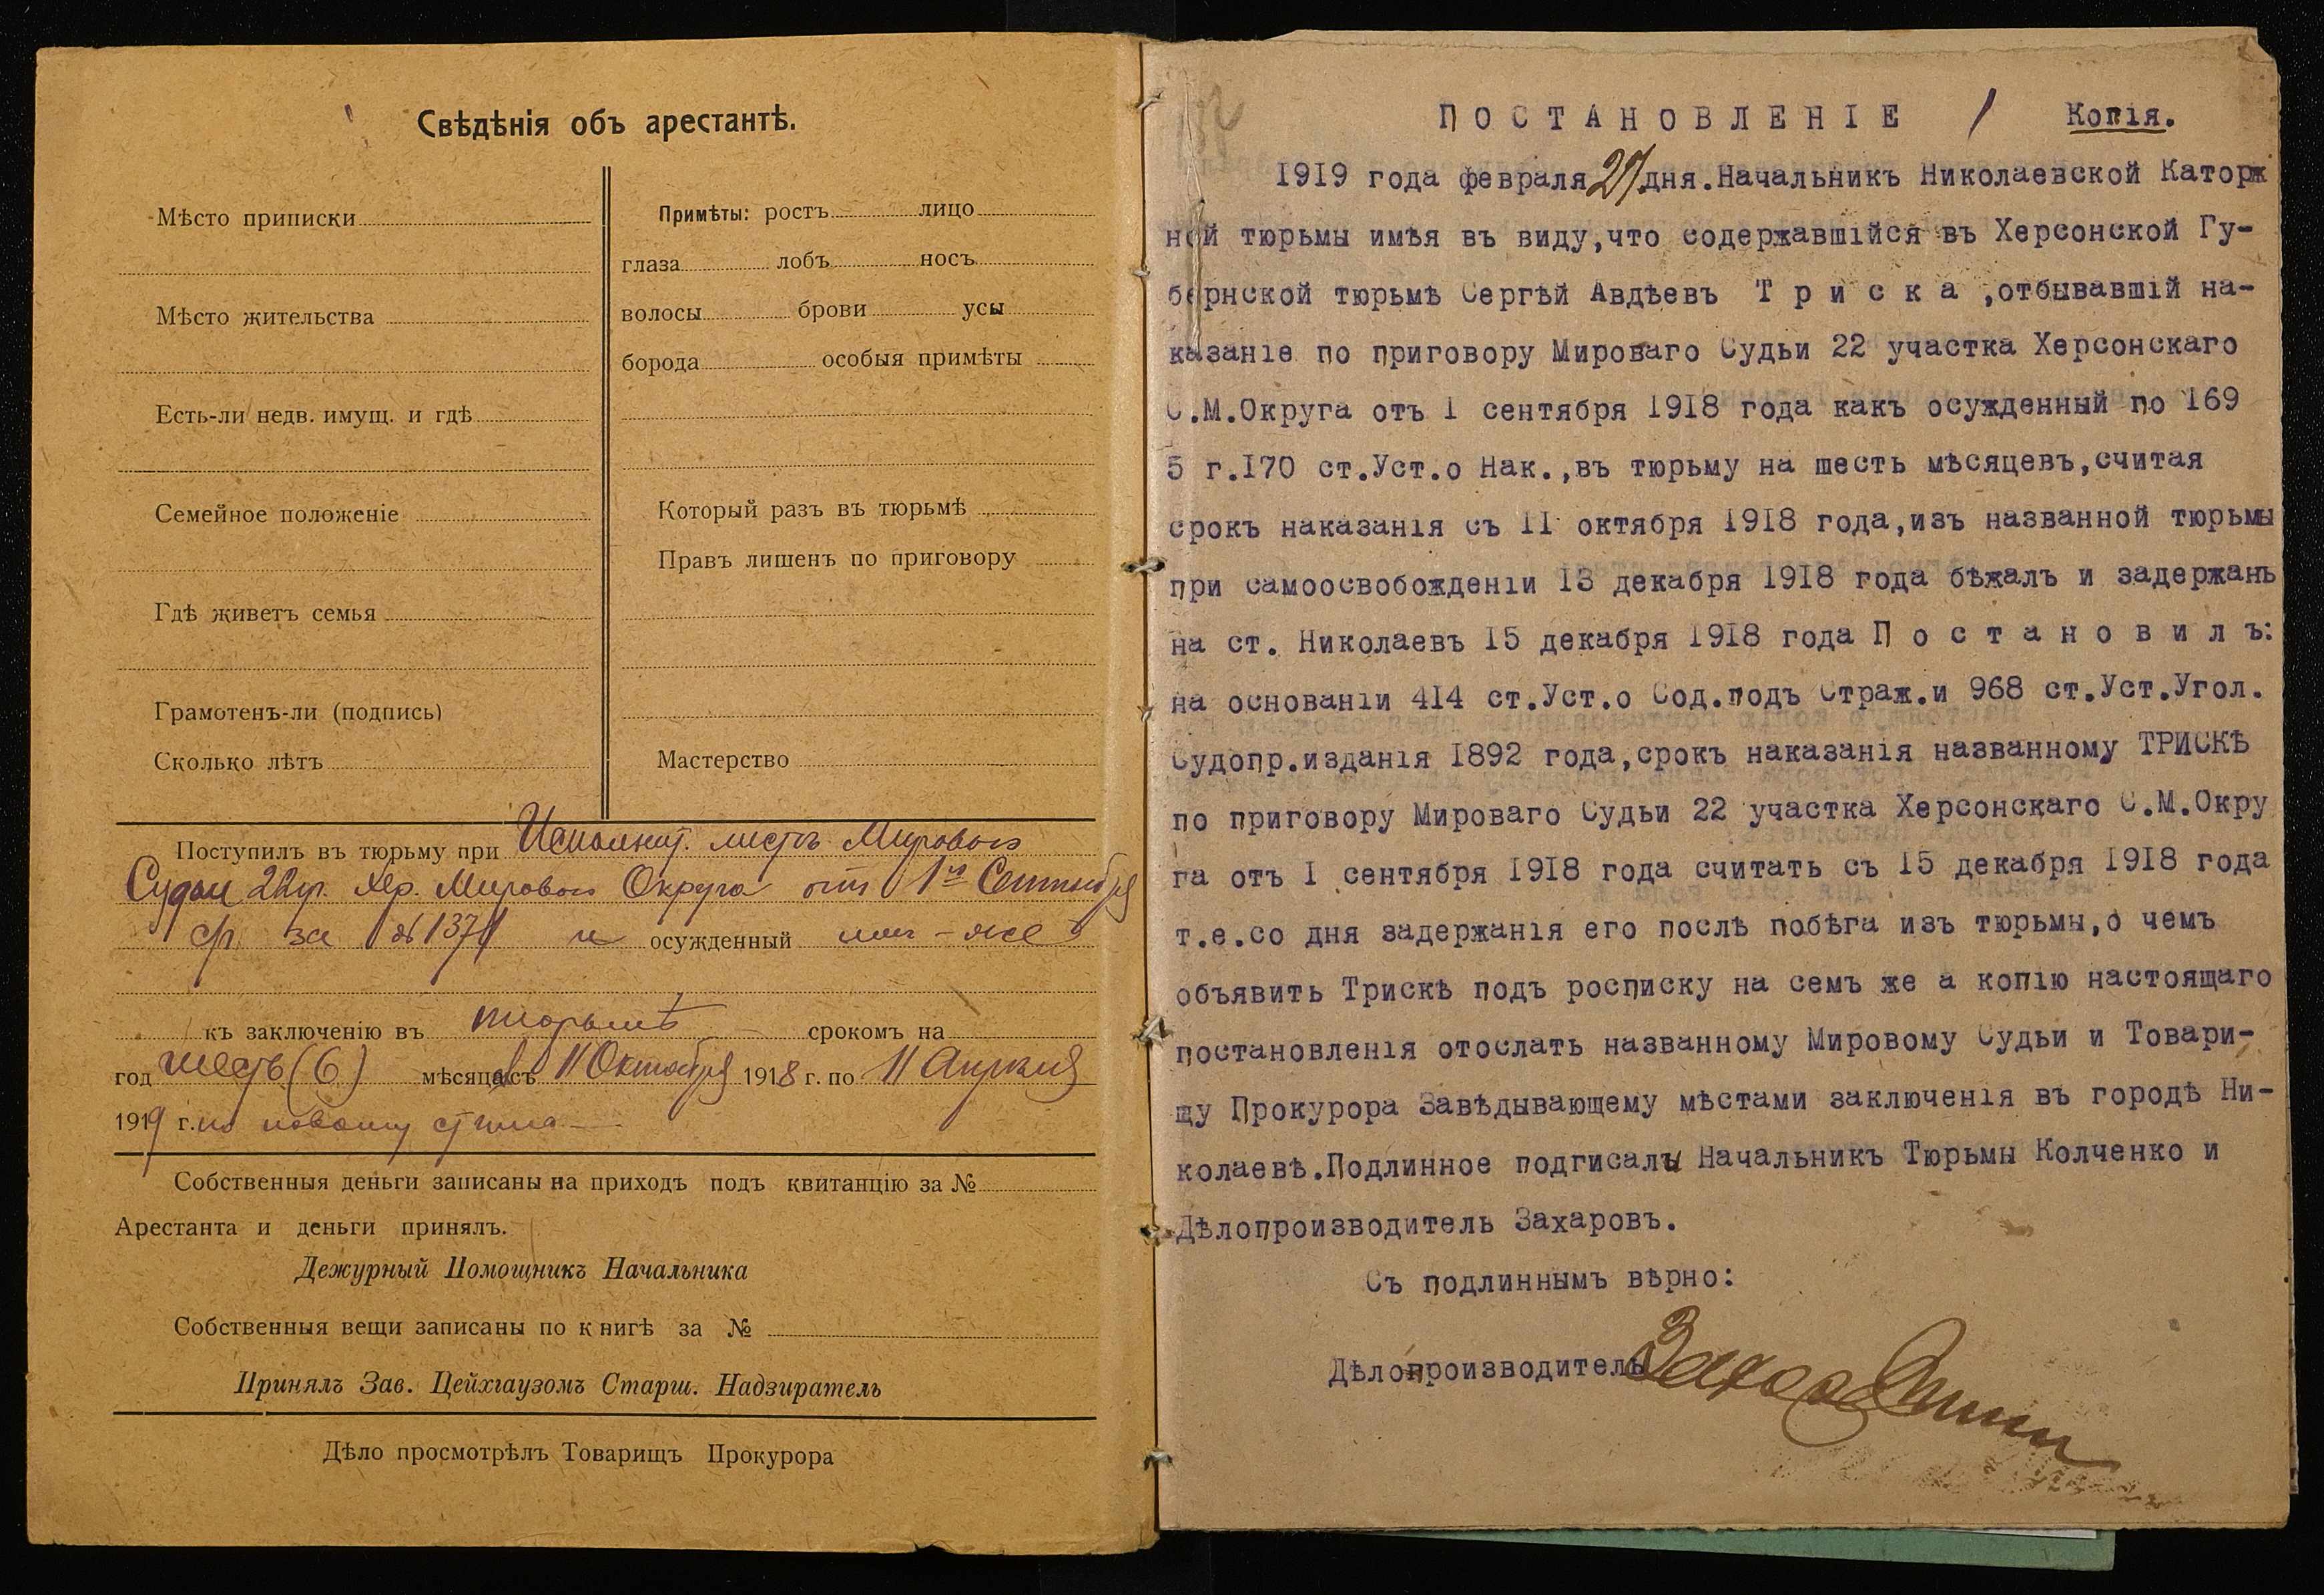 Свѣдѣнія объ арестантѣ.
Мѣсто приписки
Мѣсто жительства
Есть-ли недв. имущ. и гдѣ
Семейное положеніе
Гдѣ живетъ семья
Грамотенъ-ли (подпись)
Сколько лѣтъ
Примѣты: ростъ лицо
глаза лобъ носъ
волосы брови усы
борода особыя примѣты
Который разъ въ тюрьмѣ
Правъ лишенъ по приговору
Мастерство
Поступилъ въ тюрьму при Исполнит. листъ Мирового
Судьи 22 уч. Хер. Мирового Округа отъ 1го Сентября
с/г. за № 1371 и осужденный
къ заключенію въ тюрьмѣ срокомъ на
год шесть (6) мѣсяцевъ съ 11 Октября 1918 г. по 11 Апреля
1919 г. по новому стилю
Собственныя деньги записаны на приходъ подъ квитанцію за №
Арестанта и деньги принялъ.
Дежурный Помощникъ Начальника
Собственныя вещи записаны по книгѣ за №
Принялъ Зав. Цейхгаузомъ Старш. Надзиратель
Дѣло просмотрѣлъ Товарищъ Прокурора
ПОСТАНОВЛЕНІЕ 1 Копія.
1919 года февраля 27 дня.Начальникъ Николаевской Каторж
ной тюрьмы имѣя въ виду,что содержавшійся въ Херсонской Гу-
бернской тюрьмѣ Сергѣй Авдѣевъ Триска,отбывавшій на-
казаніе по приговору Мироваго Судьи 22 участка Херсонскаго
С.М.Округа отъ 1 сентября 1918 года какъ осужденный по 169
5 г.170 ст.Уст.о Нак.,въ тюрьму на шесть мѣсяцевъ,считая
срокъ наказанія съ 11 октября 1918 года,изъ названной тюрьмы
при самоосвобожденіи 13 декабря 1918 года бѣжалъ и задержанъ
на ст. Николаевъ 15 декабря 1918 года Постановилъ:
на основаніи 414 ст.Уст.о Сод.подъ Страж.и 968 ст.Уст.Угол.
Судопр.изданія 1892 года,срокъ наказанія названному ТРИСКѢ
по приговору Мироваго Судьи 22 участка Херсонскаго С.М.Окру
га отъ 1 сентября 1918 года считать съ 15 декабря 1918 года
т.е.со дня задержанія его послѣ побѣга изъ тюрьмы,о чемъ
объявить Трискѣ подъ росписку на семъ же а копію настоящаго
постановленія отослать названному Мировому Судьи и Товари-
щу Прокурора Завѣдывающему мѣстами заключенія въ городѣ Ни-
колаевѣ.Подлинное подгисалы Начальникъ Тюрьмы Колченко и
Дѣлопроизводитель Захаровъ.
Съ подлиннымъ вѣрно:
Дѣлопроизводитель Захаровъ